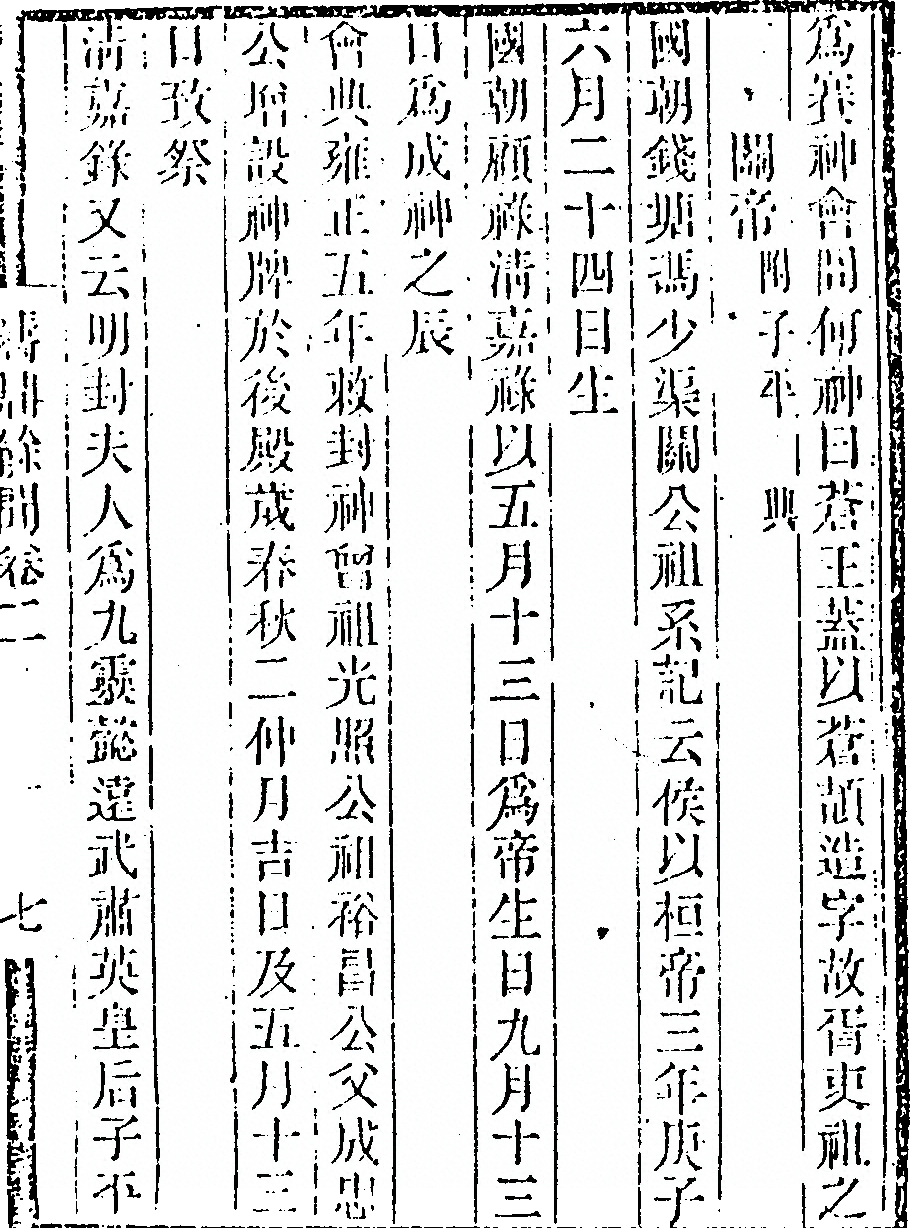 爲賽神會問何神曰蒼王蓋以蒼頡造字故胥吏祖之
關帝 附子平 興
國朝錢塘馮少渠關公祖系記云侯以桓帝三年庚子
六月二十四日生
國朝顧祿清嘉祿以五月十三日爲帝生日九月十三
日爲成神之辰
會典雍正五年敕封神曾祖光照公祖裕昌公父成忠
公增設神牌於後殿歲春秋二仲月吉日及五月十三
日致祭
清嘉錄又云明封夫人爲九靈懿德武肅英皇后子平
卷二
七